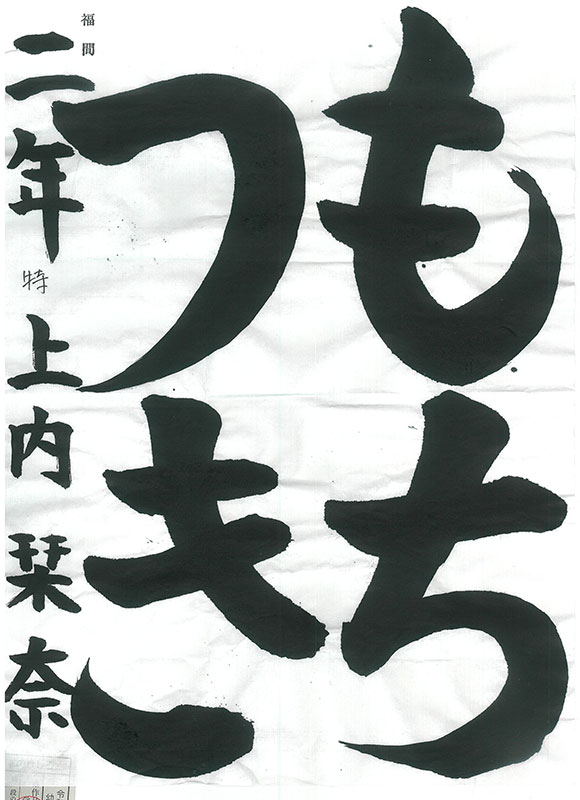 もち
つき
福間
二年
特
上内栞奈